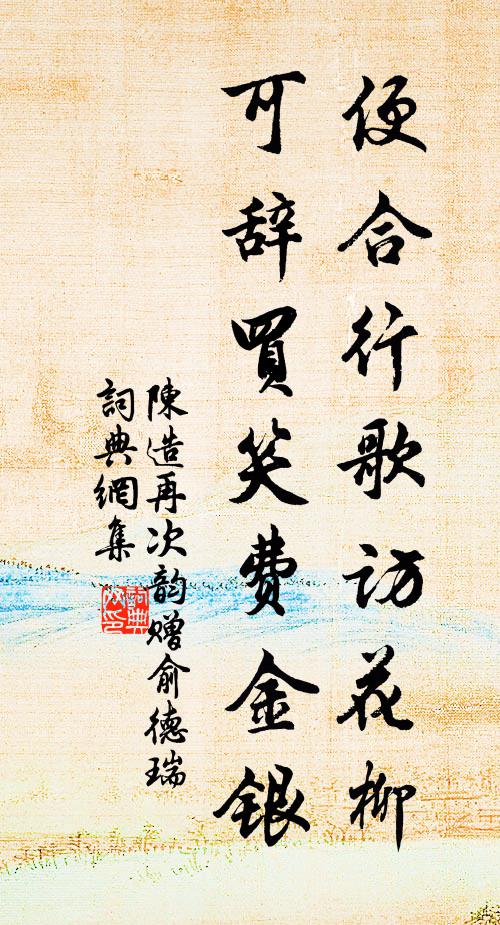 便合行歌访花柳
可辞買笑费金銀
陳造再次韵贈俞德瑞
詞典網集